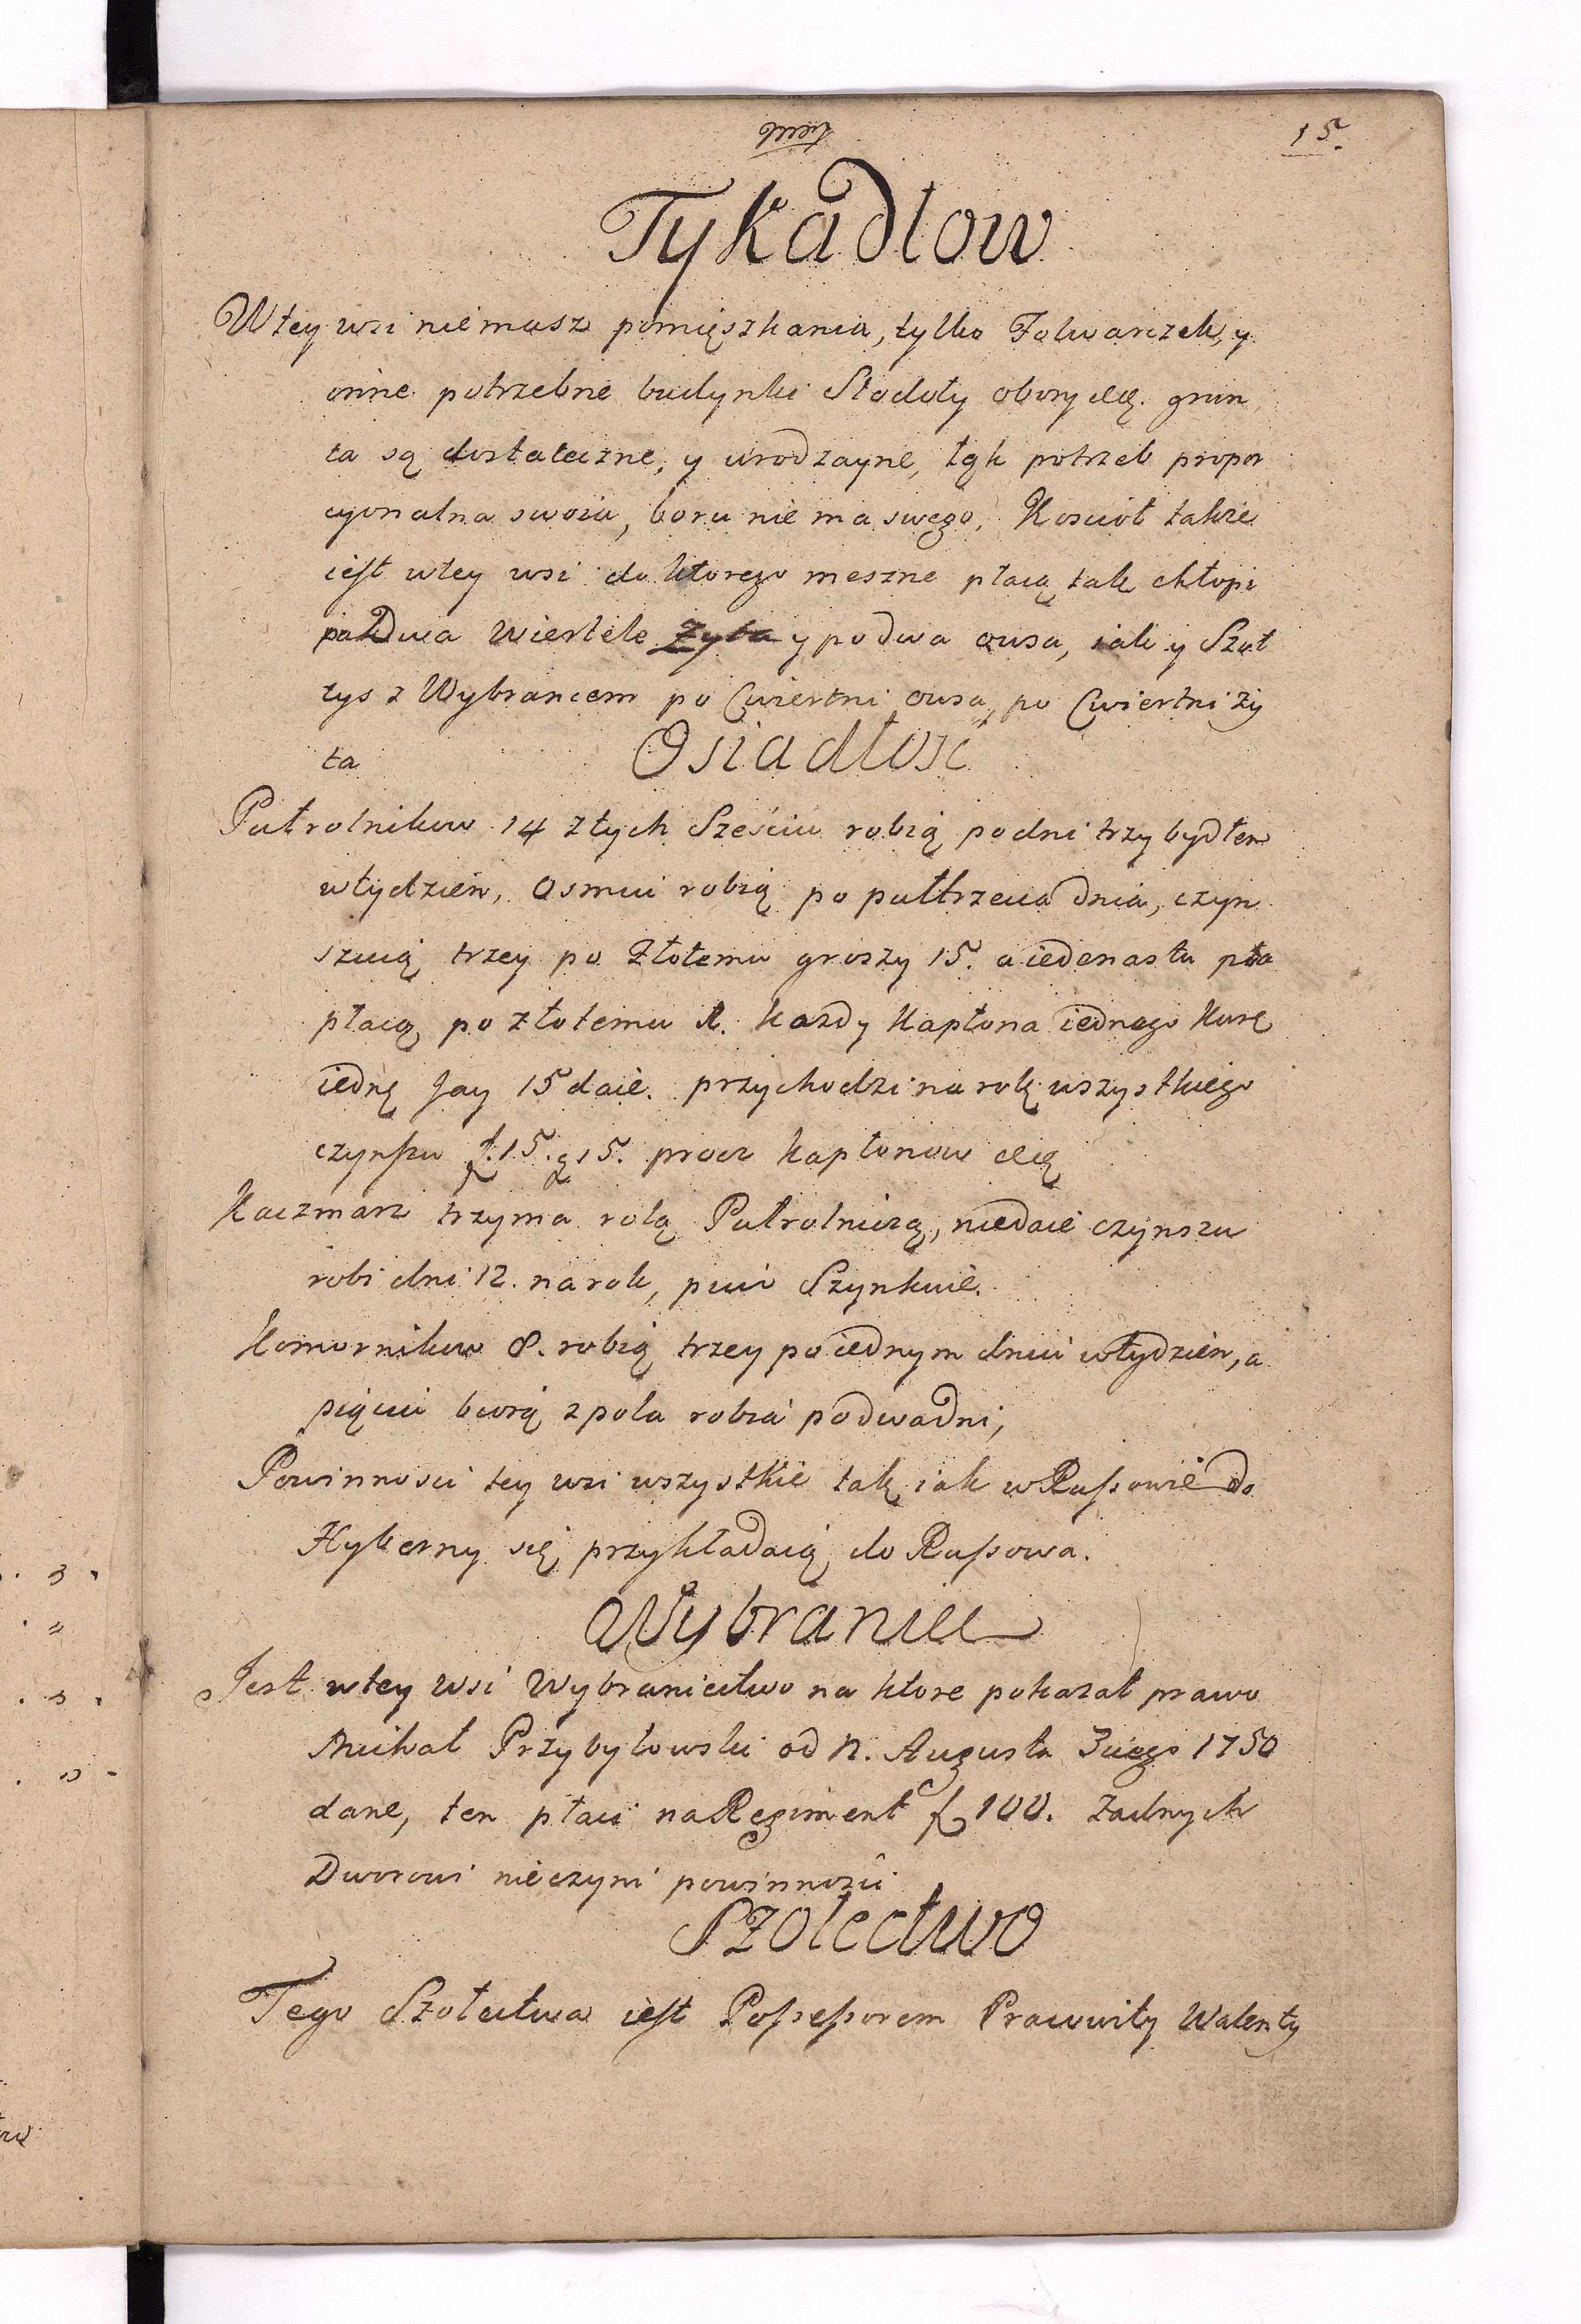 15.
Tykadlow
W tey wsi niemasz pomięszkania, tylko Folwarczek, y
inne potrzebne budynki Stodoły obory etc. grun
ta są dostateczne, y urodzayne, łąk potrzeb propor
cyonalna swoia, boru nie ma swego, Kościoł także
iest wtey wsi do ktorego meszne płacą tak chłopi
po dwa wiertele Zyta y po dwa owsa, iak y Szoł
tys z Wybrancem po Cwiertni owsa, po Cwiertni ży
ta
Osiadłość
Pułrolnikow 14 z tych Sześciu robią po dni trzy bydłem
wtydzień, Osmiu robią po pułtrzecia dnia, czyn
szuią trzey po Złotemu groszy 15. a iedenastu pła
płacą po złotemu 1. każdy Kapłona iednego Kurę
iednę Jay 15 daie. przychodzi na rolę wszystkiego
czynszu f. 15. g 15. procz kapłonow etc
Kaczmarz trzyma rolą Pułrolniczą, niedaie czynszu
robi dni 12. na rok, piwo Szynkuie.
Komornikow 8. robią trzey po iednym dniu wtydzień, a
pięciu biorą z pola robią po dwa dni,
Powinnosci tey wsi wszystkie tak iak w Russowie do
Hyberny się przykładaią do Russowa.
Wybraniec
Jest wtey wsi Wybraniectwo na ktore pokazał prawo
Michał Przybyłowski od N. Augusta 3ciego 1750
dane, ten płaci na Regiment f 100. Zadnych
Dworowi nieczyni powinnosci
Szołectwo
Tego Szołectwa iest Possessorem Pracowity Walenty